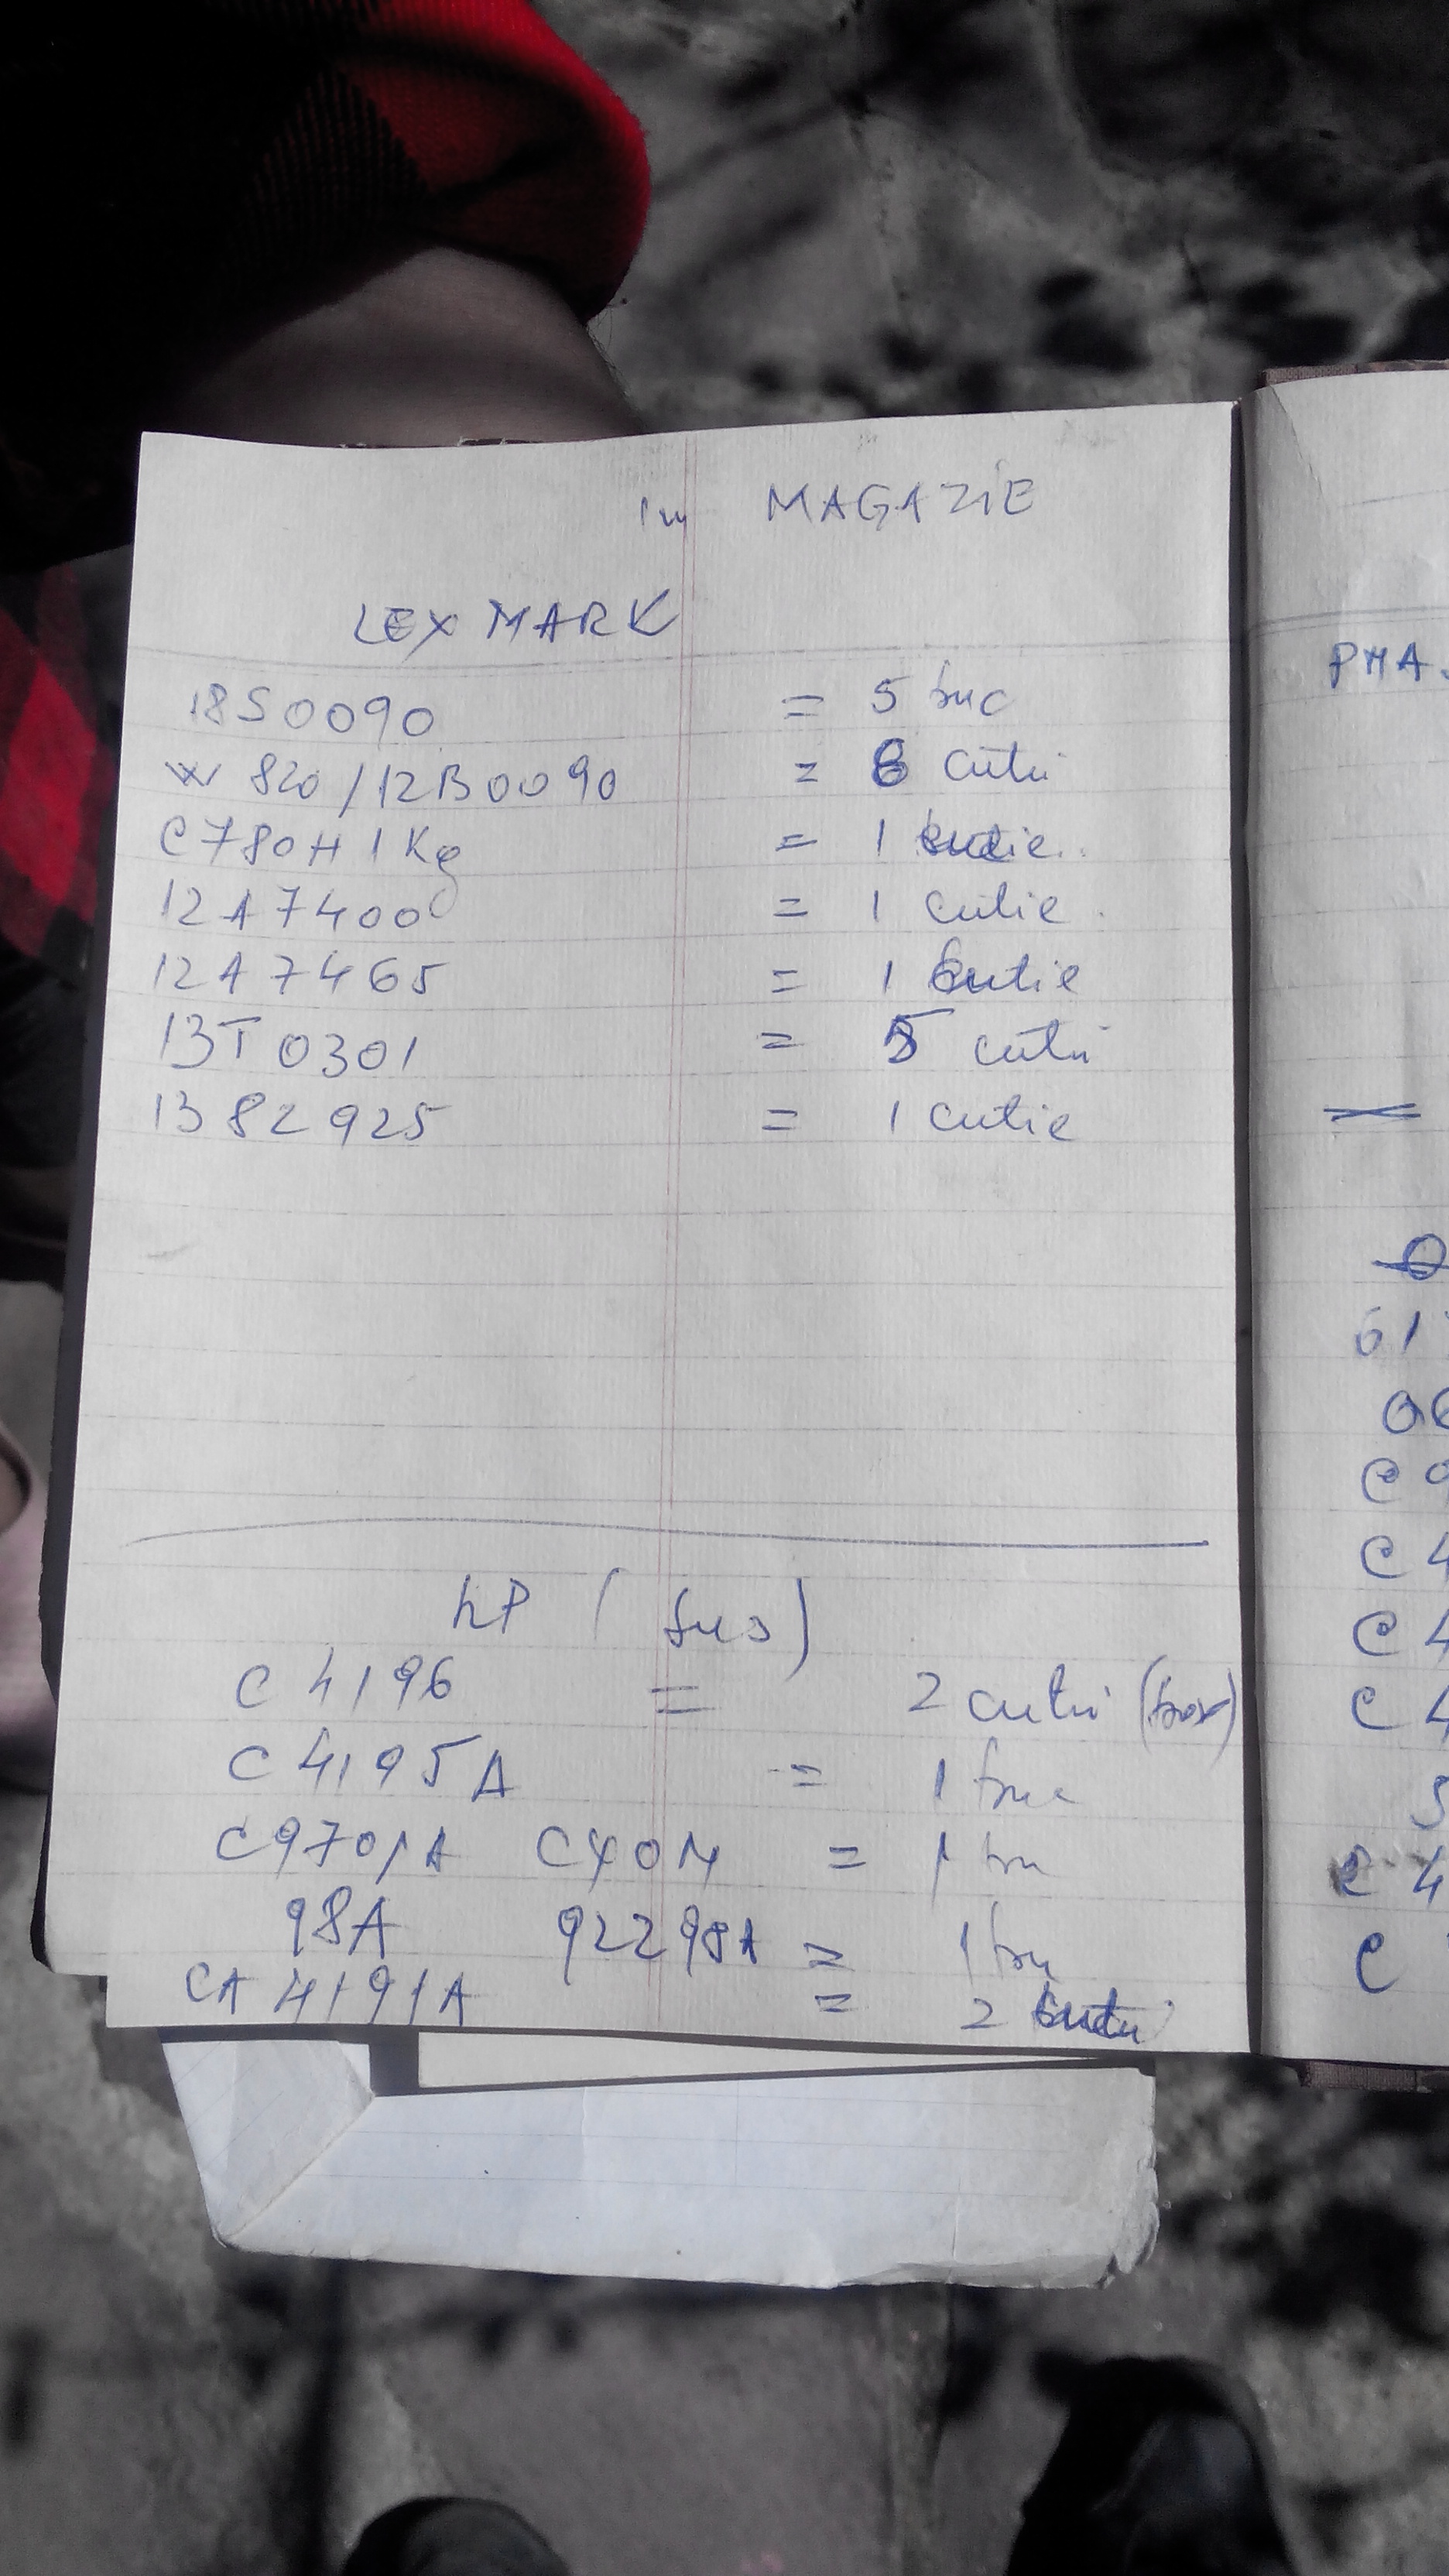 în MAGAZIE
LEXMARK
18S0090 = 5 buc
W 820/12B0090 = 6 cutii
C780H1Kg = 1 cutie.
12A7400 = 1 cutie.
12A7465 = 1 cutie
13T0301 = 5 cutii
1382925 = 1 cutie
hP (sus)
C4196 = 2 cutii
C4195A = 1 buc
C9701A = 1 bu
98A 92298A = 1 bu
CA 4191A = 2 cutii
PHA
61
06
C 9
C 4
C 4
C 4
C 4
C